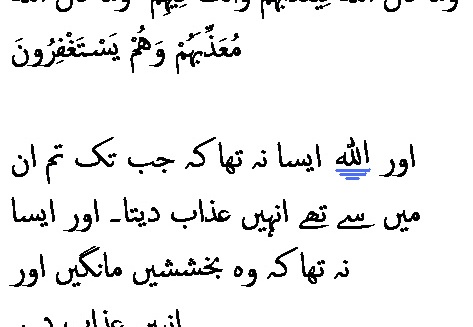 مُعَذِّبَهُمْ وَهُمْ يَسْتَغْفِرُونَ
اور الله ایسا نہ تھا کہ جب تک تم ان
میں سے تھے انہیں عذاب دیتا۔ اور ایسا
نہ تھا کہ وہ بخششیں مانگیں اور
انہیں عذاب